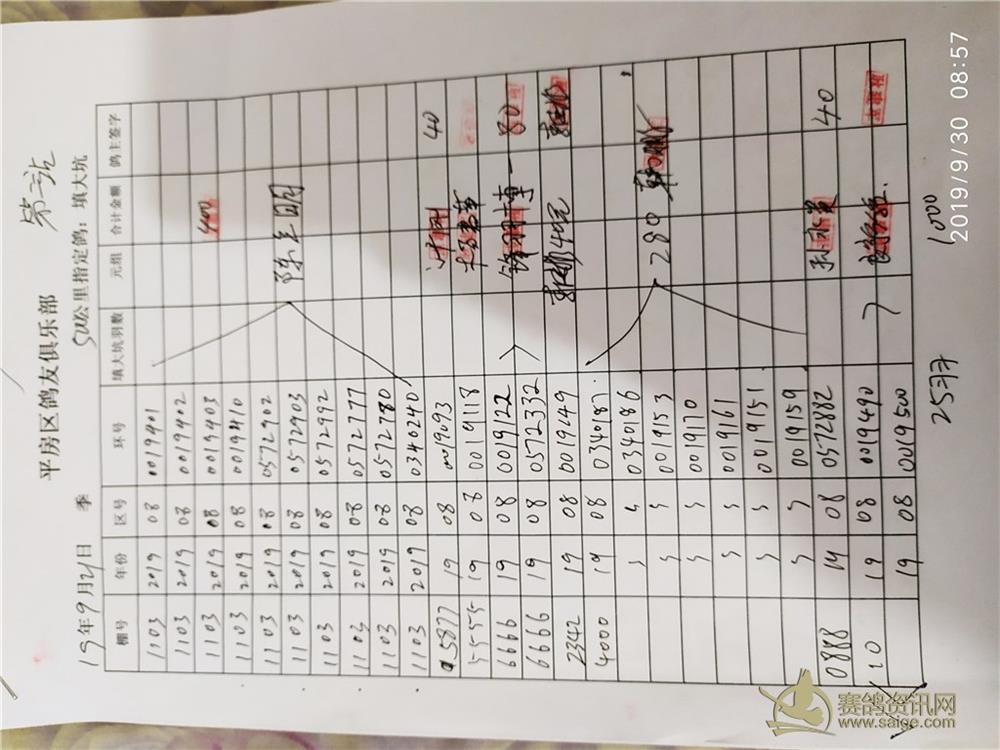 平房区鸽友俱乐部
第二站
19年9月21日 季
500公里指定鸽：填大坑
棚号 年份 区号 环号 填大坑羽数 元组 合计金额 鸽主签字
1103 2019 08 0019401
1103 2019 08 0019402
1103 2019 08 0019403 400
1103 2019 08 0019410
1103 2019 08 0572902
1103 2019 08 0572903
1103 2019 08 0572992
1103 2019 08 0572777
1103 2019 08 0572780
1103 2019 08 0340240
5877 19 08 0019093 40
5555 19 08 0019118
6666 19 08 0019122 80
6666 19 08 0572332
2342 19 08 0019249
4000 19 08 0340187
0340186
0019153 280
0019170
0019161
0019151
0019159
0888 19 08 0572882 40
110 19 08 0019490
19 08 0019500
25羽 1000
2019/9/30 08:57
赛鸽资讯网
www.saige.com